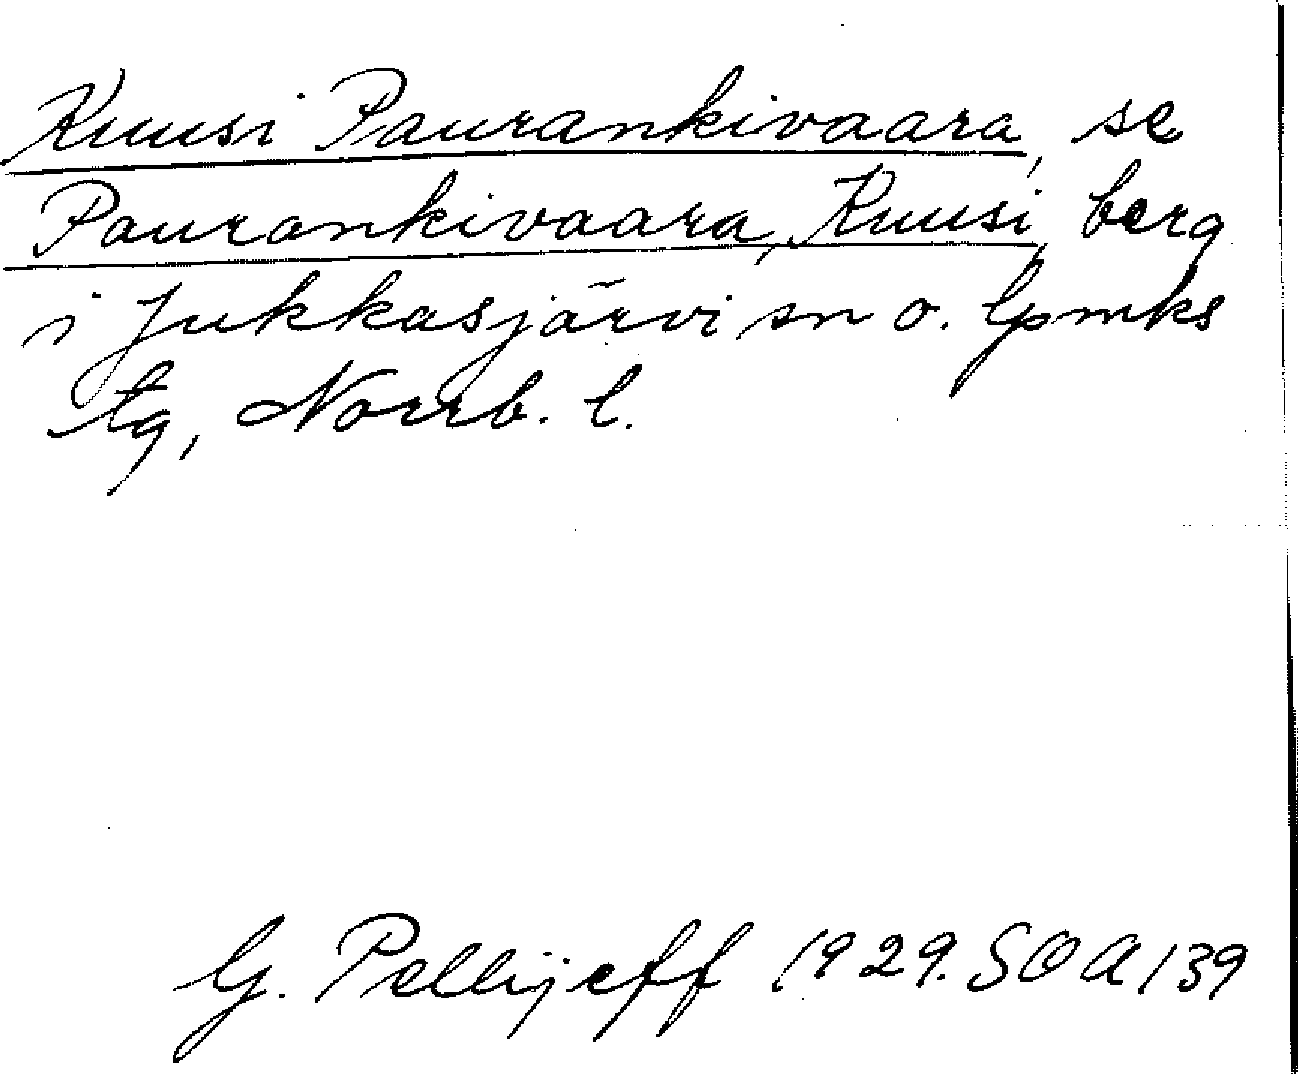 Kuusi Paurankivaara, se
Paurankivaara, Kuusi, berg
i Jukkasjärvi sn o. lpmks
tg, Norrb. l.
G. Pellijeff 1929. SOA 139